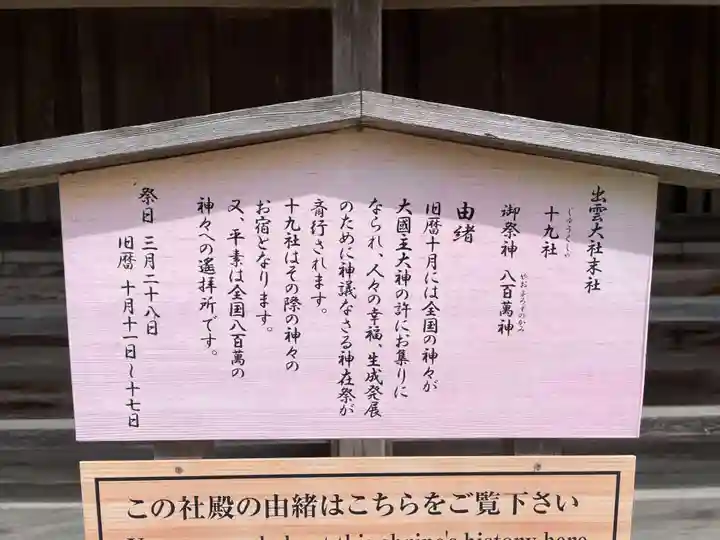 出雲大社末社
十九社
じゅうくしゃ
御祭神 八百萬神
やおよろずのかみ
由緒
旧暦十月には全国の神々が
大國主大神の許にお集りに
なられ、人々の幸福、生成発展
のために神議なさる神在祭が
斎行されます。
十九社はその際の神々の
お宿となります。
又、平素は全国八百萬の
神々への遙拝所です。
祭日 三月二十八日
旧暦 十月十一日～十七日
この社殿の由緒はこちらをご覧下さい
this shrine's history here